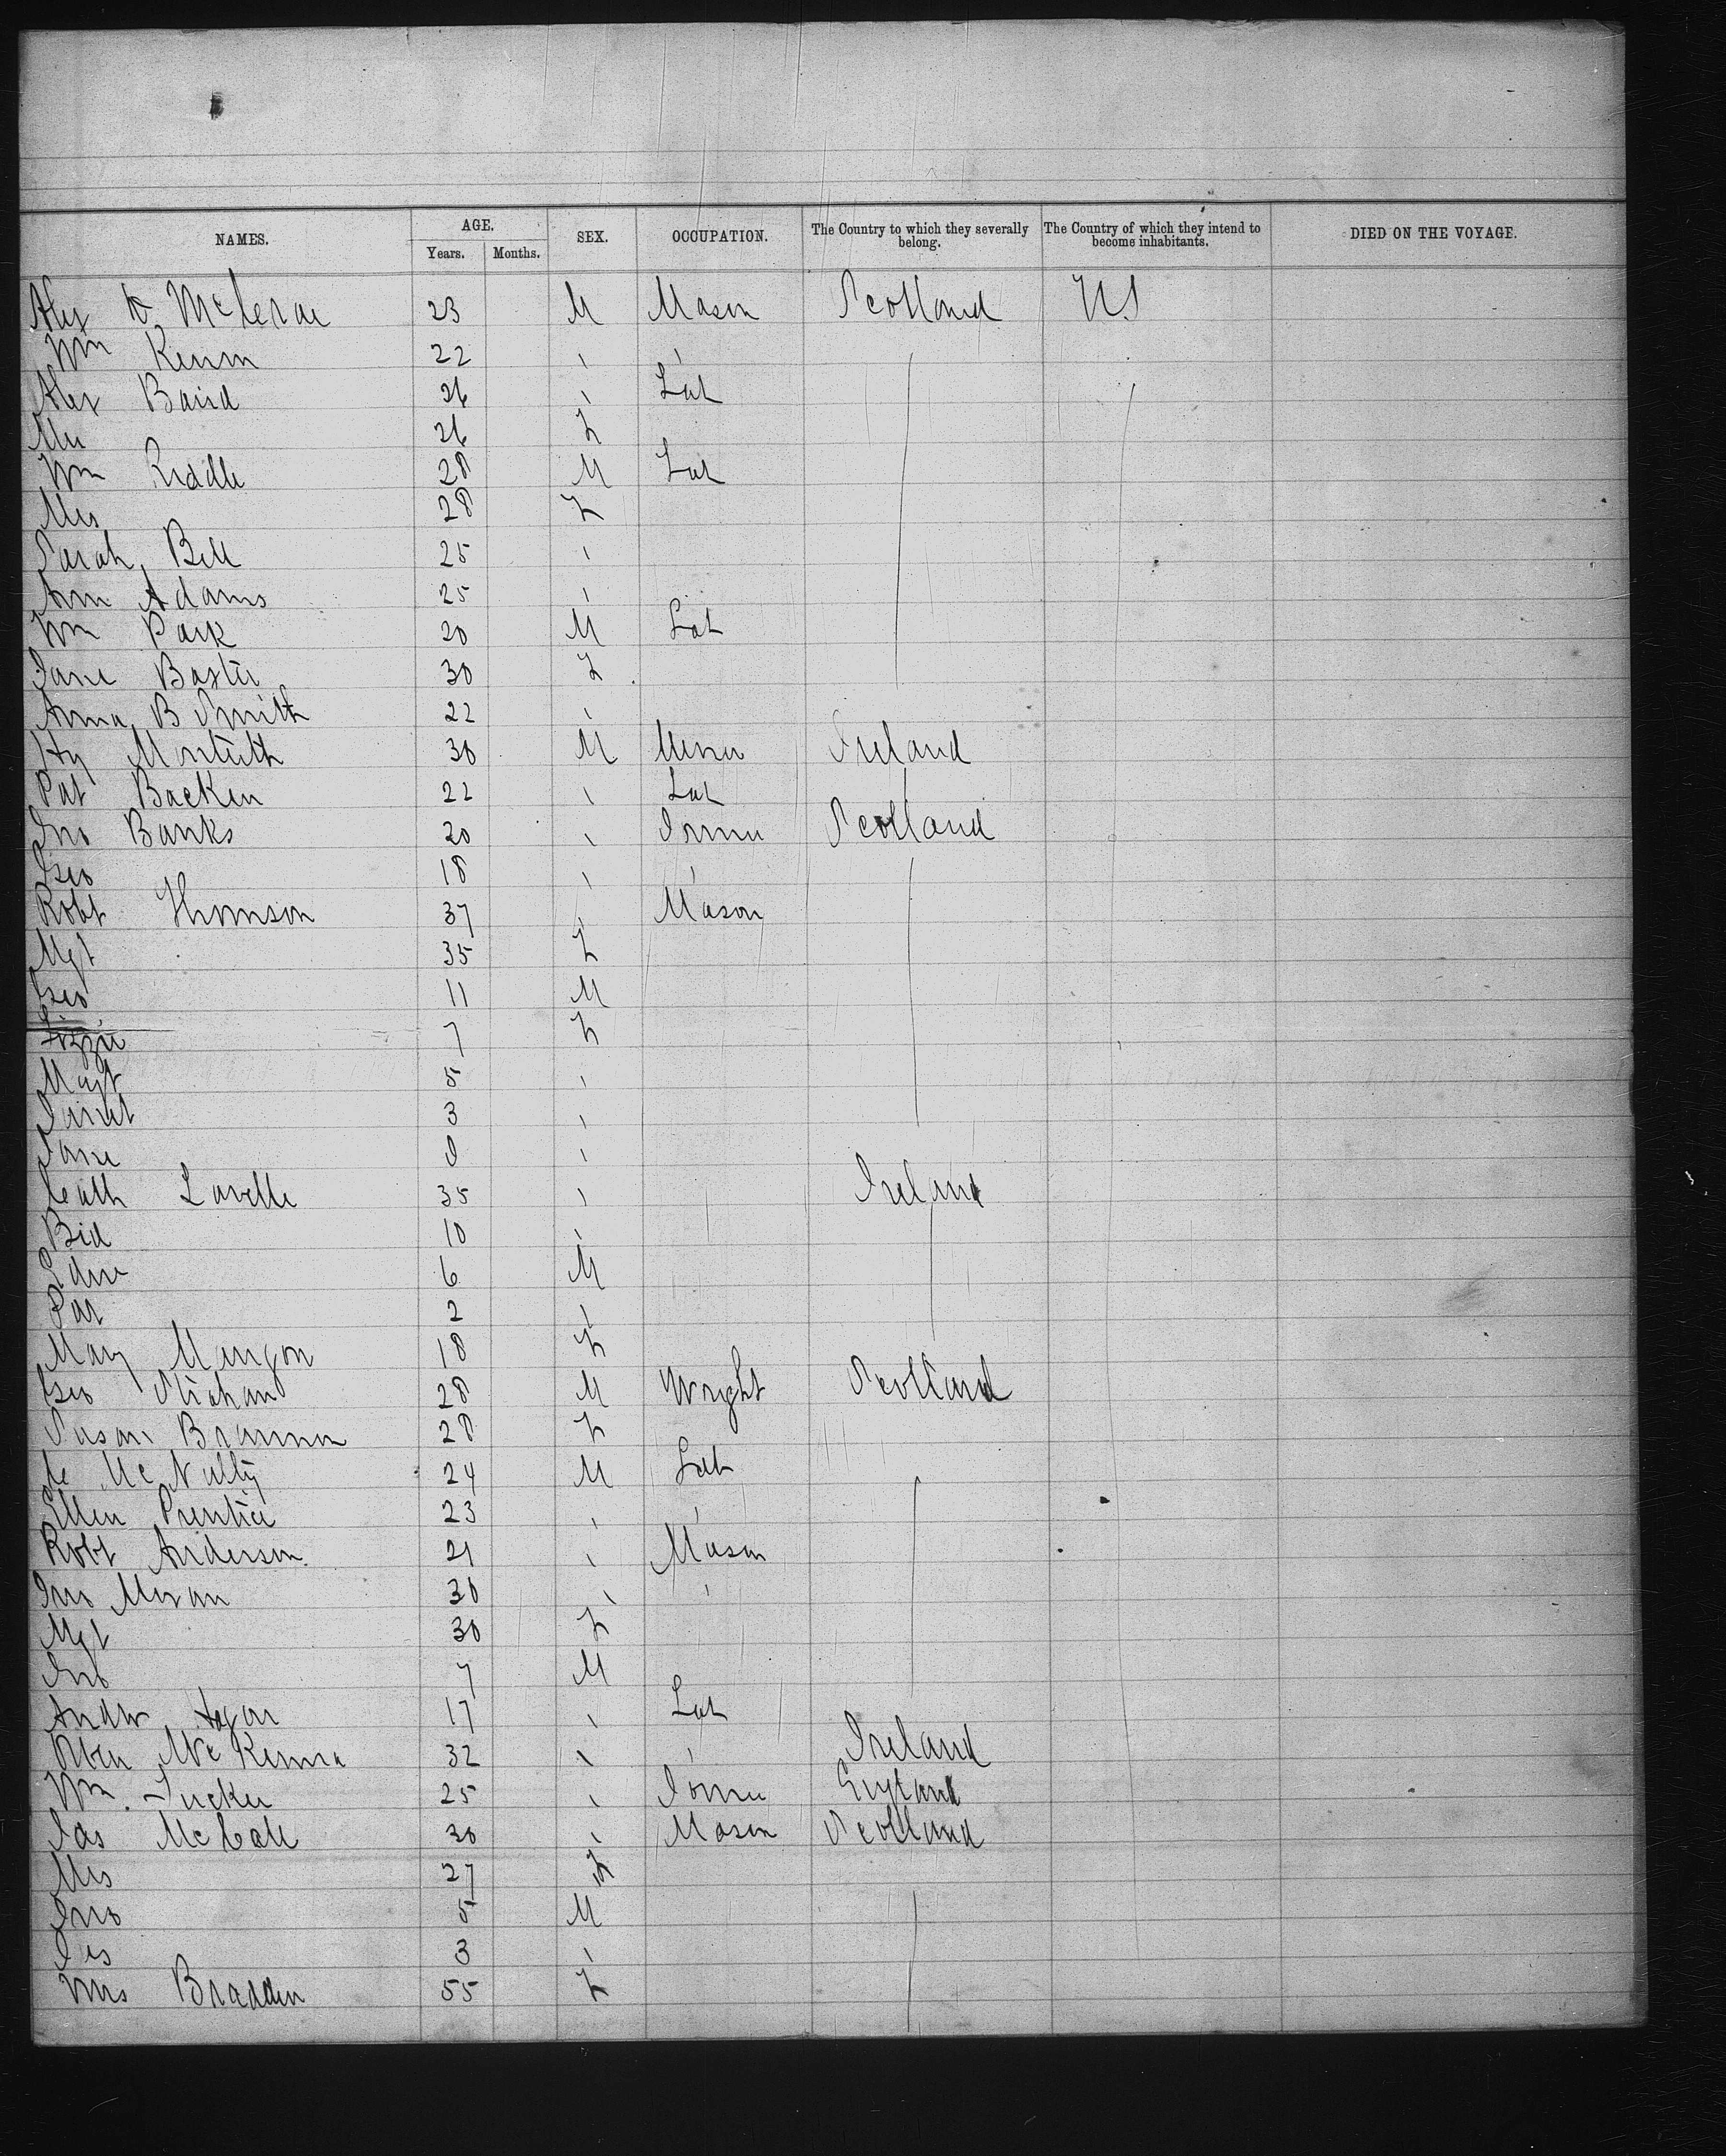 NAMES. AGE. SEX. OCCUPATION. The Country to which they severally belong. The Country of which they intend to become inhabitants. DIED ON THE VOYAGE.
Years. Months.
Alex 23 M Mason Scotland US
Wm 22 " "
Alex Baird 26 " Lab
Mrs 26 F
Wm Riddle 28 M Lab
Mrs 28 F
Sarah Bell 25 "
Ann Adams 25 "
Wm Park 20 M Lab
Jane Baxter 30 F
Anna B Smith 22 "
Hy Monteith 30 M Miner Ireland
Pat Backen 22 " Lab
Jno Banks 20 " Scotland
Geo 18 " "
Robt Thomson 37 " Mason
Mgt 35 F
Geo 11 M
Lizzie 7 F
Magt 5 "
Janet 3 "
Jane 0 "
Cath Lavelle 35 " Ireland
Bid 10 "
6 M
Pat 2 "
Mary Mangan 18 F
Geo Strahan 28 M Wright Scotland
Susan Brannon 28 F
McNulty 24 M Lab
Ellen Prentice 23 " "
Robt Anderson 21 " Mason
Jno 30 " "
Mgt 30 F
Jno 7 M
Andw 17 " Lab
McKenna 32 " " Ireland
Wm Tucker 25 " England
Jas McCall 30 " Mason Scotland
Mrs 27 F
Jno 5 M
Jas 3 "
Mrs Bradden 55 F